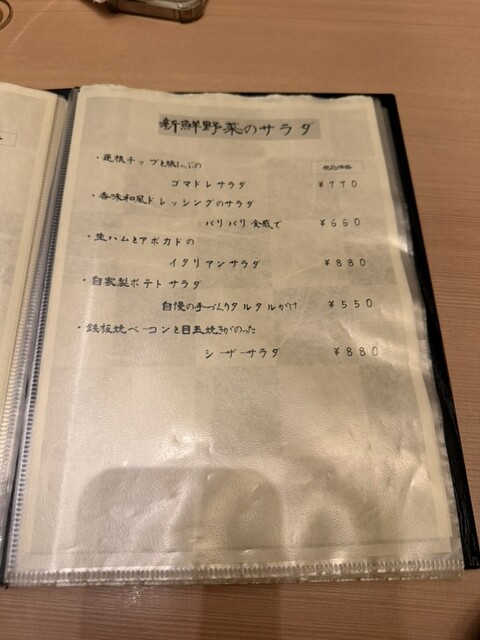 新鮮野菜のサラダ
税込価格
・蓮根チップと豚しゃぶの
ゴマドレサラダ ¥770
・香味和風ドレッシングのサラダ
パリパリ食感で ¥550
・生ハムとアボカドの
イタリアンサラダ ¥880
・自家製ポテトサラダ
自慢の手づくりタルタルがけ ¥550
・鉄板焼ベーコンと目玉焼きがのった
シーザーサラダ ¥880